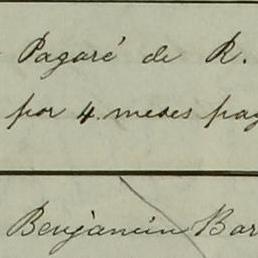 Pagaré de R.
por 4 meses pag
Benjamin Bar